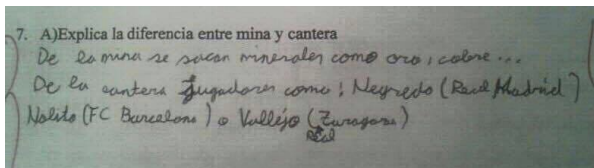 7. A)Explica la diferencia entre mina y cantera
De la mina se sacan minerales como oro, cobre...
De la cantera jugadores como: Negredo (Real Madrid)
Nolito (FC Barcelona) o Vallejo (Zaragoza)
Real